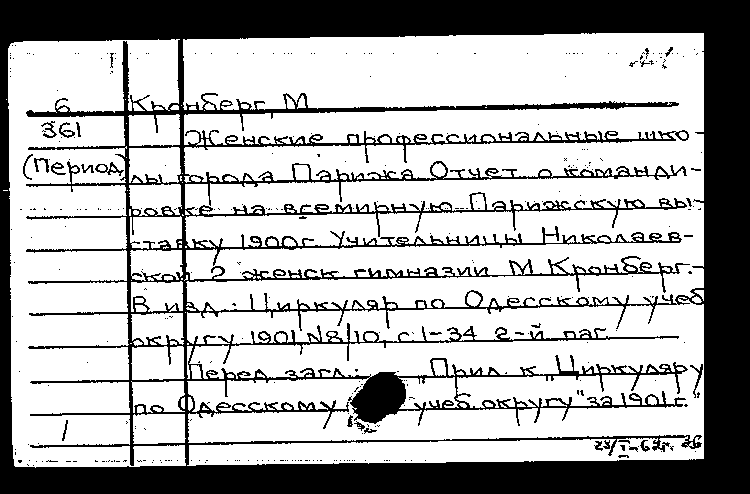 6 Кронберг, М
361 Женские профессиональные шко-
(Период) лы города Парижа Отчет о команди-
ровке на всемирную Парижскую вы-
ставку 1900г Учительницы Николаев-
ской 2 женск гимназии М. Кронберг.-
В изд.: Циркуляр по Одесскому учеб
округу 1901, №8/10, с.1-34 2-й паг
Перед загл.: "Прил. к "Циркуляру
по Одесскому учеб. округу" за 1901 г."
1